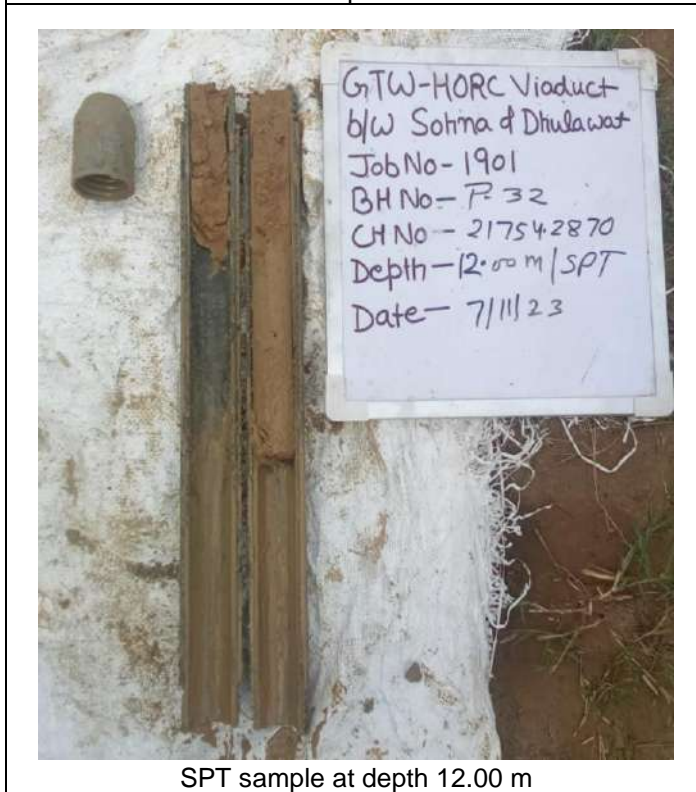 GTW-HORC Viaduct
b/w Sohna & Dhulawat
Job No - 1901
BH No - P-32
CH No - 21754.2870
Depth - 12.00 m / SPT
Date - 7/11/23
SPT sample at depth 12.00 m